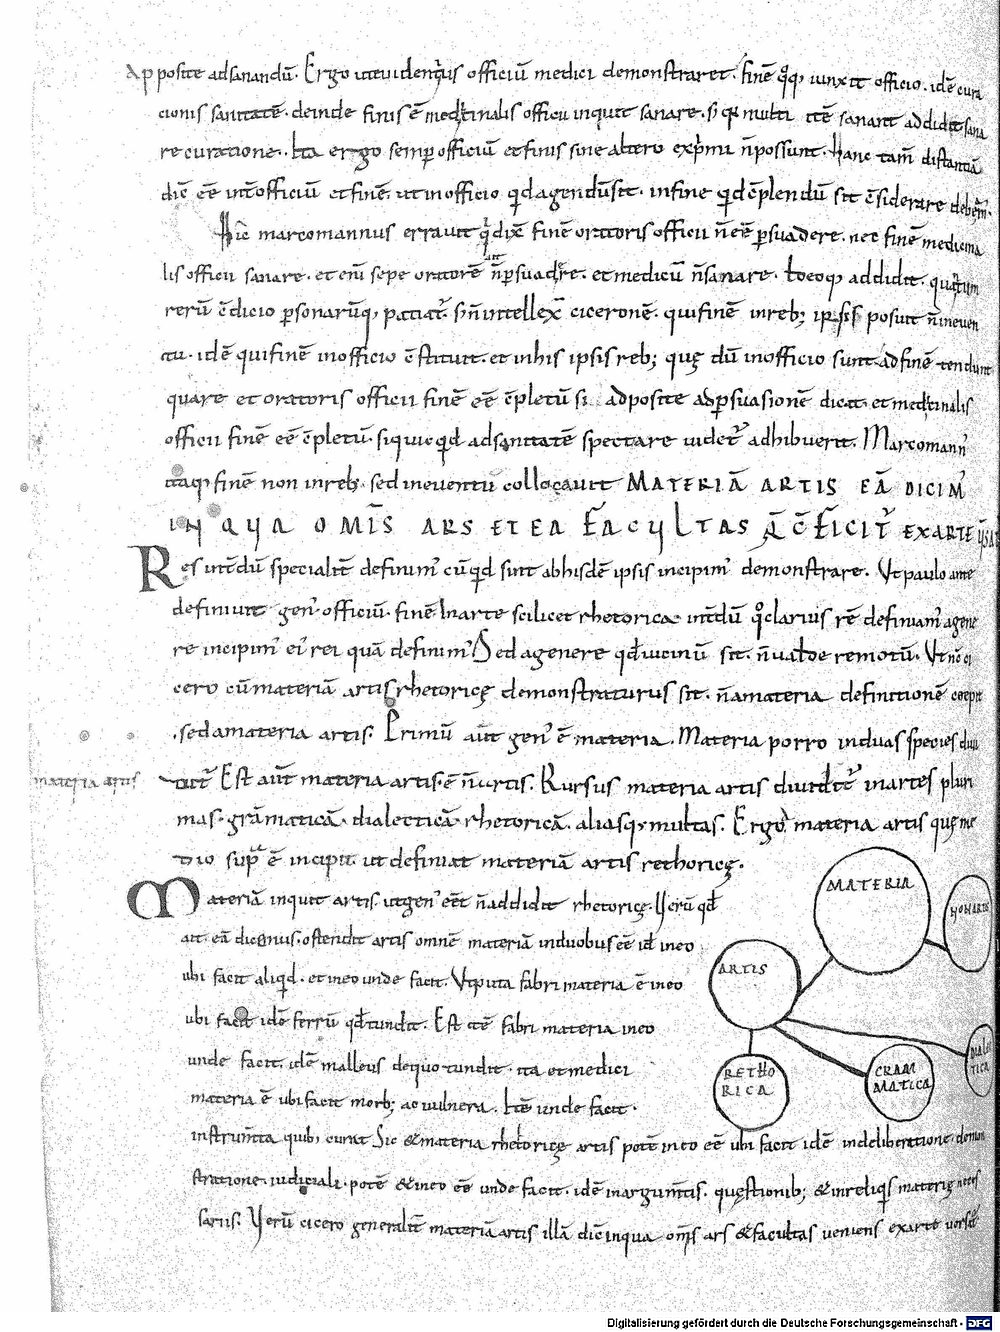 Apposite adsanandū. Ergo uteuidentius officiū medici demonstraret. finē quoq; iunxit officio. idē cura
tionis sanitatē. deinde finis ē medicinalis officii inquit sanare. s; q̄ multi itē sanant addidit sana
re curatione. Ita ergo semp officiū et finis sine altero exp̄mi n̄possunt. hanc tam̄ distantiā
dic̄ eē int̄ officiū et finē. ut in officio qđ agendū sit. in fine qđ c̄plendū sit c̄siderare debem̄.
Hic marcomannus errauit q̄ dix̄ finē oratoris officii n̄ eē p̄suadere. nec finē medicina
lis officii sanare. et enī sepe oratorē n̄p̄suadere. et medicū n̄sanare. Locoq; addidit. quantum
rerū c̄dicio p̄sonarūq; patiat̄. S; n̄intellex̄ ciceronē. quifinē inreb; ipsis posuit n̄ ineuen
tu. idē quifinē inofficio c̄stituit. et inhis ipsis reb; quę dū inofficio sunt adfinē tendunt
quare et oratoris officii finē eē c̄pletū si adposite adp̄suasionē dicat. et medicinalis
officii finē eē c̄pletū. siquicqđ adsanitatē spectare uidet̄ adhibuerit. Marcomann̄
itaq; finē non inreb; sed ineuentū collocauit MATERIĀ ARTIS EĀ DICIM̄
IN QUA OM̄IS ARS ET EA FACULTAS Q̄ C̄FICIT̄ EXARTE
Res int̄dū specialit̄ definim̄ cūqđ sint abhisdē ipsis incipim̄ demonstrare. Vt paulo ante
definiuit gen̄. officiū. finē Inarte scilicet rhetorica int̄dū q̊ clarius rē definiam̄ agene
re incipim̄ ei rei quā definim̄ Sed agenere qđ uicinū sit. n̄ualde remotū. Vt nc̄ ci
cero cū materiā artis rhetoricę demonstraturus sit. n̄amateria definitionē coepit
.sedamateria artis. Primū aūt gen̄ ē materia. Materia porro induas species diui
materia artis
dit̄ Est aūt materia artis. ē n̄artis. Rursus materia artis diuidit̄ inartes pluri
mas. grāmaticā. dialecticā. rhetoricā. aliasq; multas. Ergo materia artis quę me
dio sup̄ ē incipit. ut definiat materiā artis rethoricę.
Materiā inquit artis. utgen̄ eēt n̄addidit rhetoricę. Verū qđ
ait. eā dicimus. ostendit artis omnē materiā induobus eē id ineo
ubi facit aliqđ. et ineo unde facit. Vtputa fabri materia ē ineo
ubi facit idē ferrū qđ tundit. Est etē fabri materia ineo
unde facit. idē malleus dequo tundit. ita et medici
materia ē ubi facit morb; ac uulnera. Itē unde facit.
instrum̄ta quib; curat Sic & materia rhetoricę artis potē ineo eē ubi facit idē indeliberatione. demon
stratione. iudiciali. potē & ineo eē unde facit. idē inargum̄tis. quęstionib; & inreliqis materię neces
sariis. Verū cicero generalit̄ materiā artis illā dic̄ inqua om̄is ars & facultas ueniens exarte uersat̄
MATERIA
NON ARTIS
ARTIS
RETHO
RICA
GRAM
MATICA
DIALEC
TICA
Digitalisierung gefördert durch die Deutsche Forschungsgemeinschaft - DFG